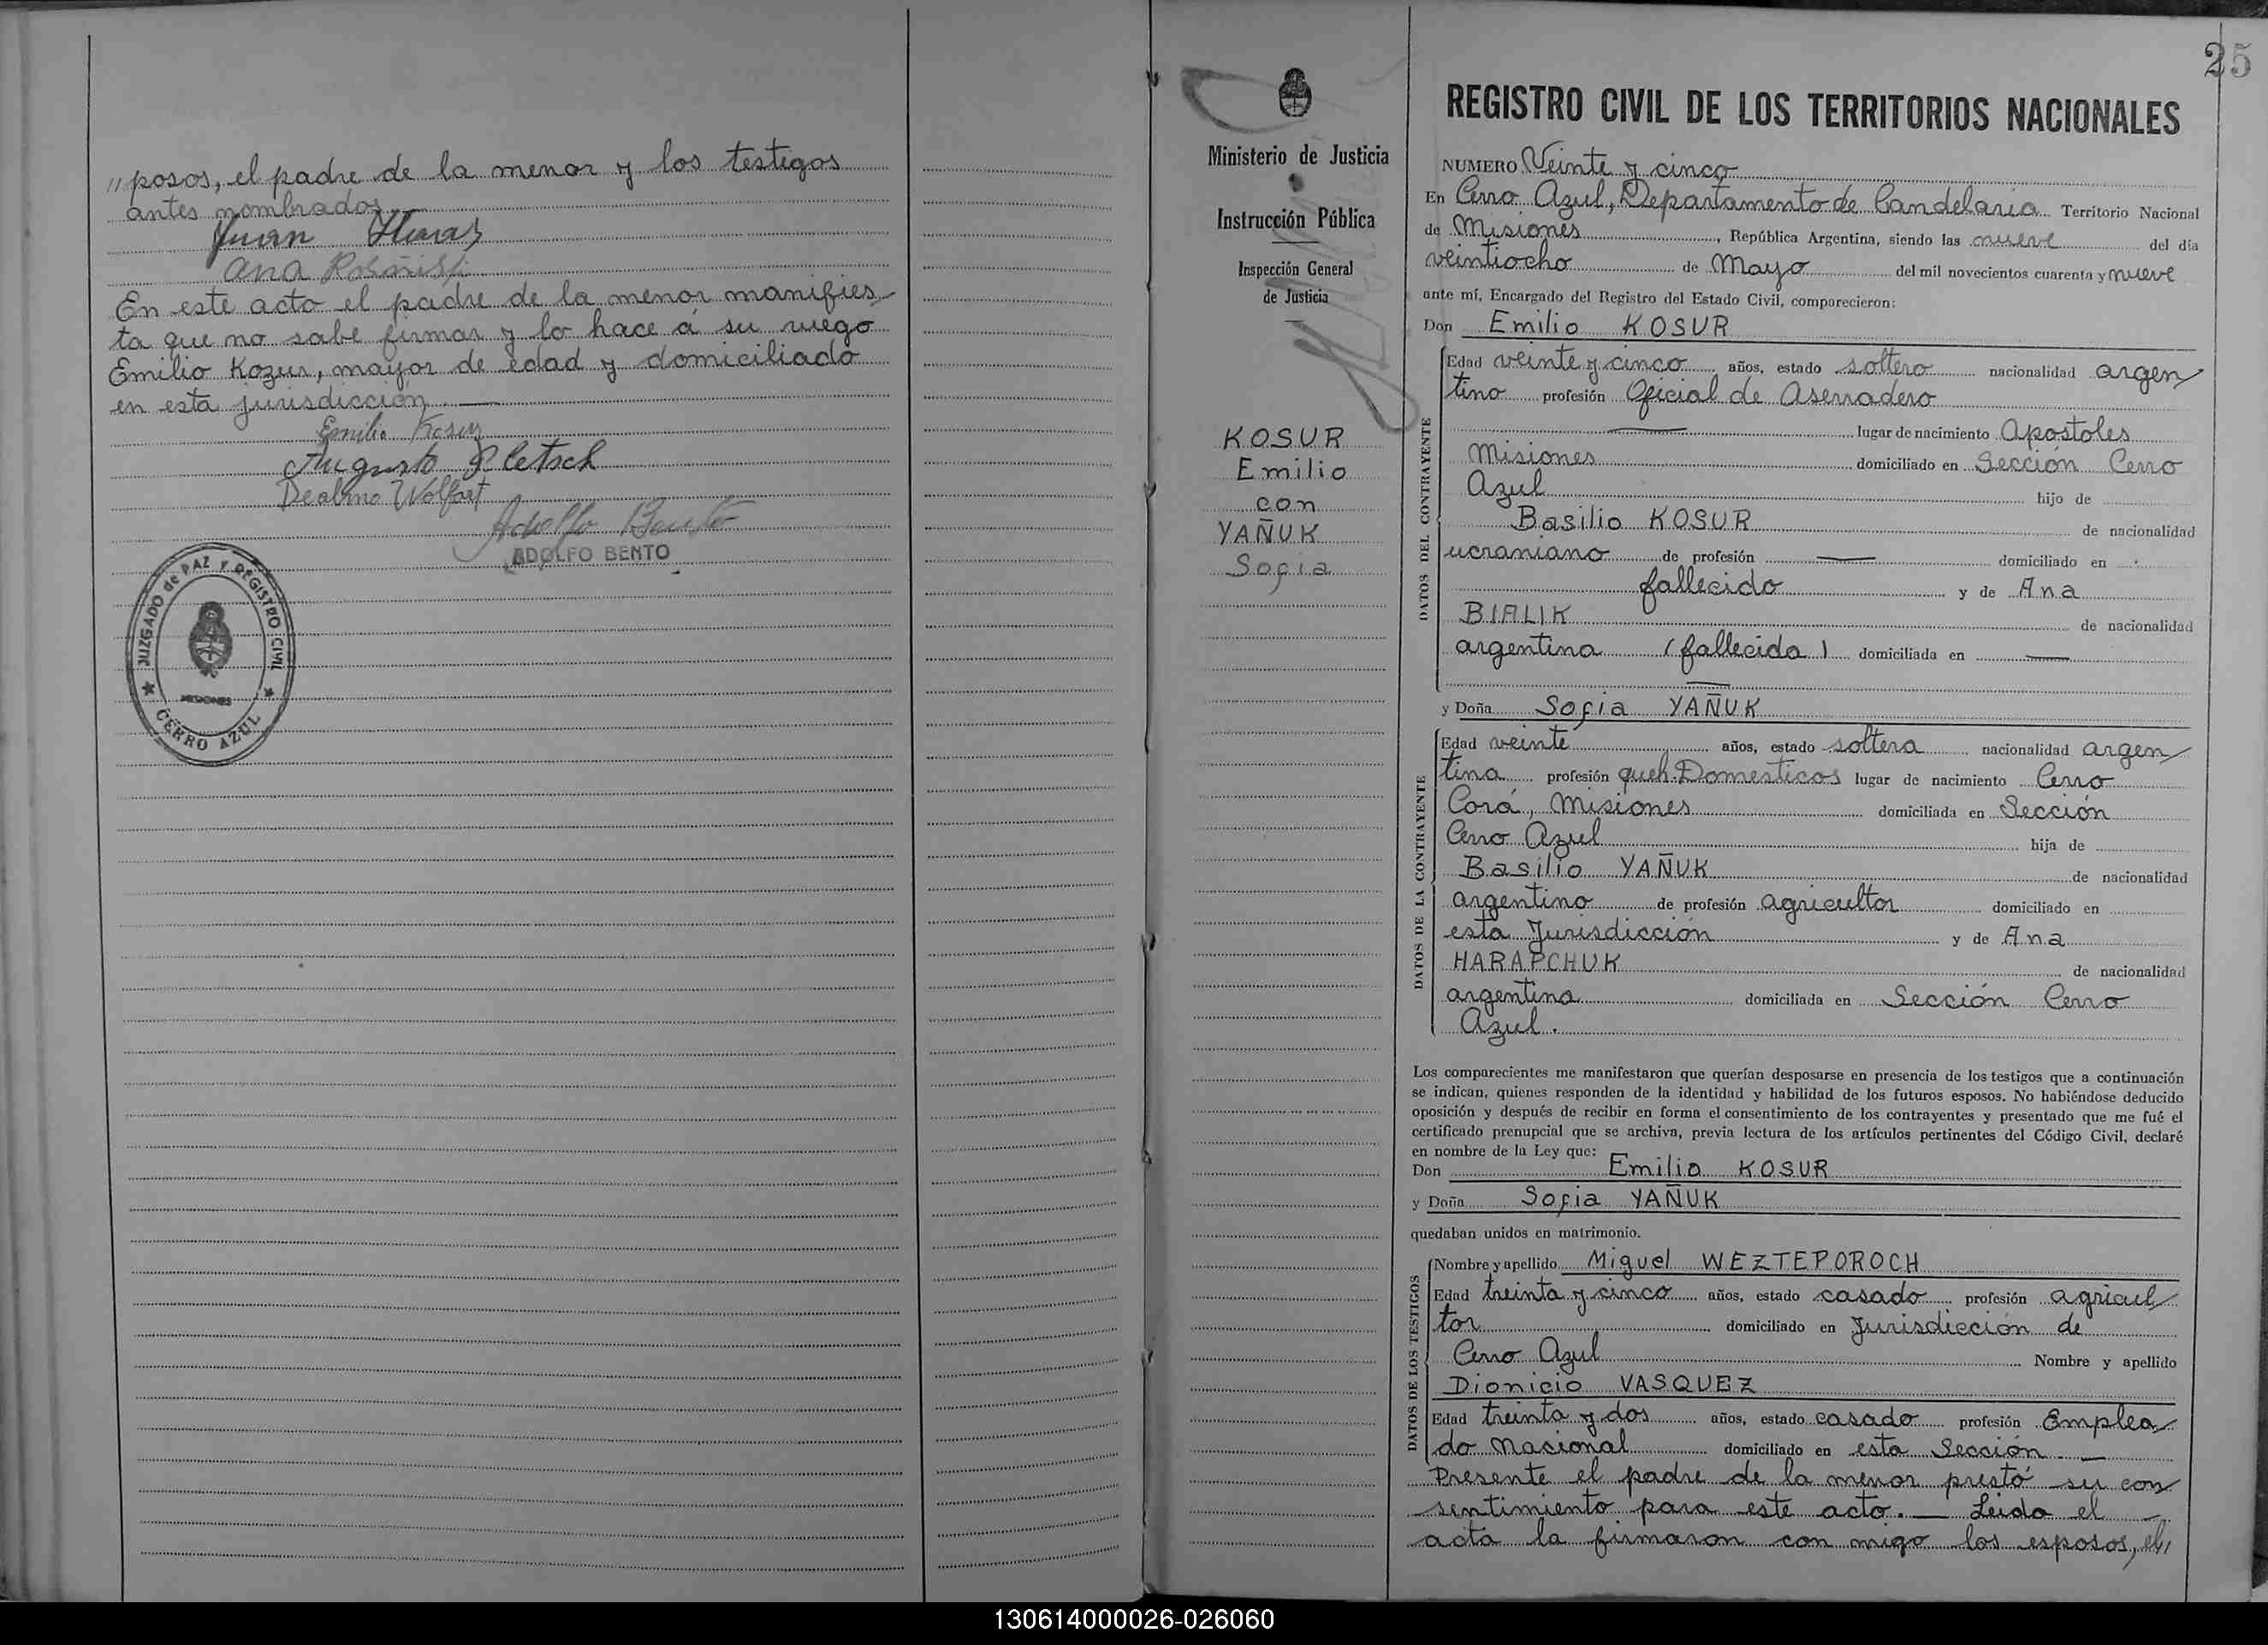 " posos, el padre de la menor y los testigos
antes nombrados
Juan
Ana
En este acto el padre de la menor manifies
ta que no sabe firmar y lo hace á su ruego
Emilio Kozur, mayor de edad y domiciliado
en esta jurisdicción. —
Emilio Kosur
Augusto Pletsch
Dealmo Wolfart
Adolfo Bento
ADOLFO BENTO
JUZGADO de PAZ Y REGISTRO CIVIL
MISIONES
CERRO AZUL
25
Ministerio de Justicia
Instrucción Pública
Inspección General
de Justicia
KOSUR
Emilio
con
YAÑUK
Sofia
REGISTRO CIVIL DE LOS TERRITORIOS NACIONALES
NUMERO Veinte y cinco
En Cerro Azul, Departamento de Candelaria Territorio Nacional
de Misiones, República Argentina, siendo las nueve del día
veintiocho de Mayo del mil novecientos cuarenta y nueve
ante mí, Encargado del Registro del Estado Civil, comparecieron:
Don Emilio KOSUR
DATOS DEL CONTRAYENTE
Edad veinte y cinco años, estado soltero nacionalidad argen
tino profesión Oficial de Aserradero
— lugar de nacimiento Apostoles
Misiones domiciliado en Sección Cerro
Azul hijo de
Basilio KOSUR de nacionalidad
ucraniano de profesión — domiciliado en
fallecido y de Ana
BIALIK de nacionalidad
argentina (fallecida) domiciliada en —
—
y Doña Sofia YAÑUK
DATOS DE LA CONTRAYENTE
Edad veinte años, estado soltera nacionalidad argen
tina profesión queh. Domesticos lugar de nacimiento Cerro
Corá, Misiones domiciliada en Sección
Cerro Azul hija de
Basilio YAÑUK de nacionalidad
argentino de profesión agricultor domiciliado en
esta Jurisdicción y de Ana
HARAPCHUK de nacionalidad
argentina domiciliada en Sección Cerro
Azul.
Los comparecientes me manifestaron que querían desposarse en presencia de los testigos que a continuación
se indican, quienes responden de la identidad y habilidad de los futuros esposos. No habiéndose deducido
oposición y después de recibir en forma el consentimiento de los contrayentes y presentado que me fué el
certificado prenupcial que se archiva, previa lectura de los artículos pertinentes del Código Civil, declaré
en nombre de la Ley que:
Don Emilio KOSUR
y Doña Sofia YAÑUK
quedaban unidos en matrimonio.
DATOS DE LOS TESTIGOS
Nombre y apellido Miguel WEZTEPOROCH
Edad treinta y cinco años, estado casado profesión agricul
tor domiciliado en Jurisdicción de
Cerro Azul Nombre y apellido
Dionicio VASQUEZ
Edad treinta y dos años, estado casado profesión Emplea
do Nacional domiciliado en esta Sección. —
Presente el padre de la menor prestó su con
sentimiento para este acto. — Leida el
acta la firmaron con migo los esposos, el,
130614000026-026060